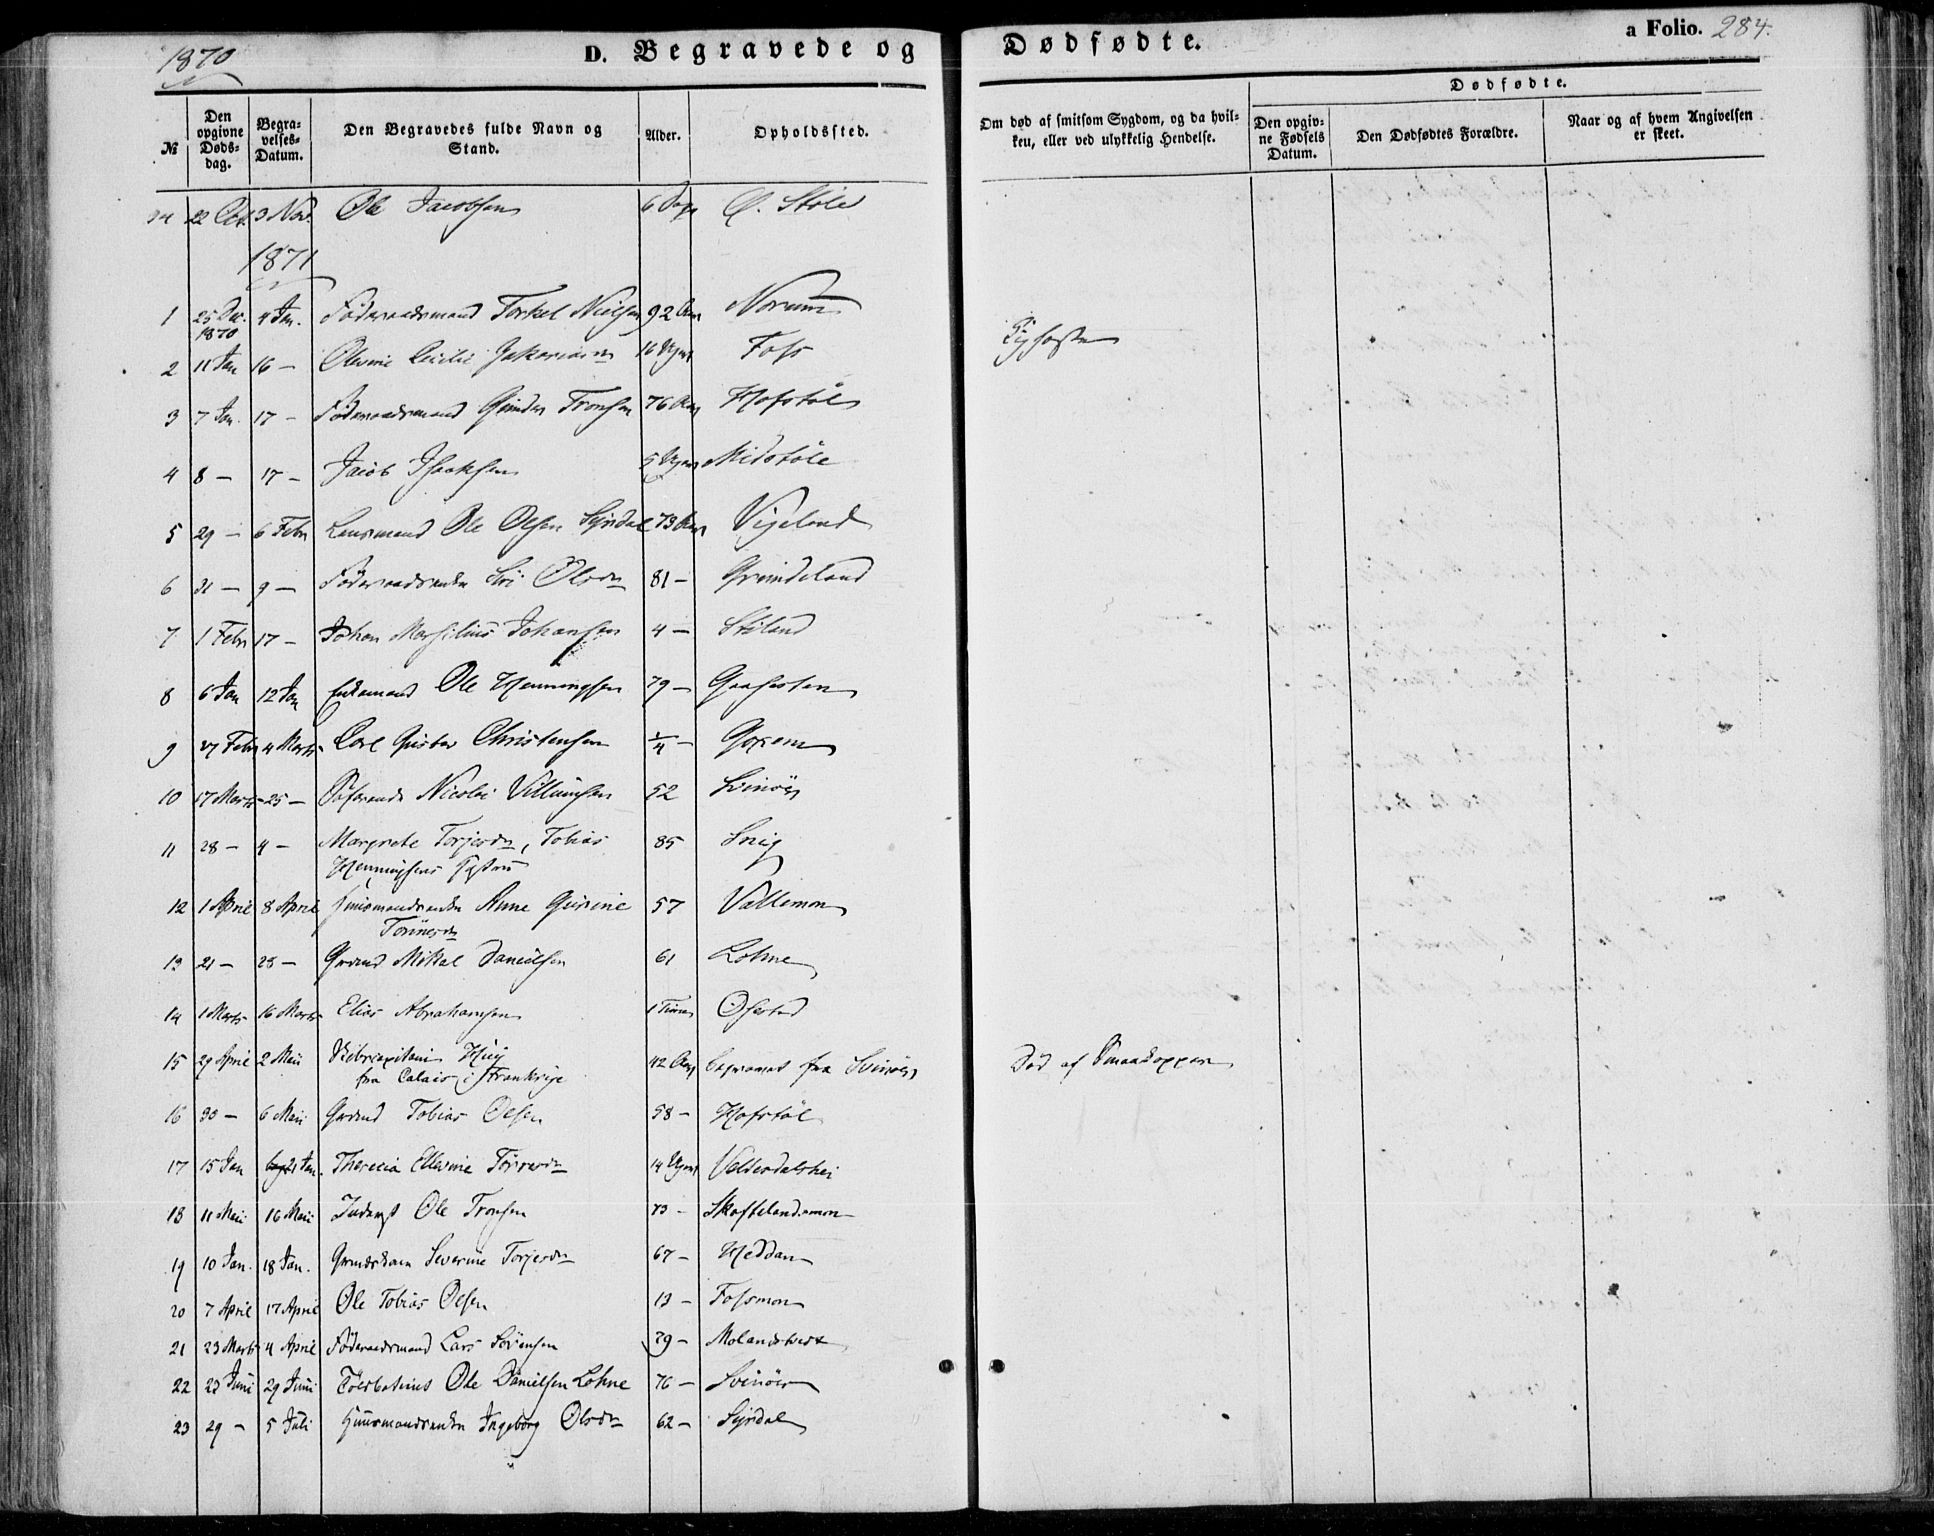 1870
D. Begravede og Dødfødte.
a Folio. 284.
№
Den opgivne Døds-dag.
Begra-velses-Datum.
Den Begravedes fulde Navn og Stand.
Alder.
Opholdssted.
Om død af smitsom Sygdom, og da hvil-ken, eller ved ulykkelig Hendelse.
Dødfødte.
Den opgiv-ne Fødsels Datum.
Den Dødfødtes Forældre.
Naar og af hvem Angivelsen er skeet.
22 Oct. 3 Nov. Ole Jacobsen 6 Dage Ø. Støle
1871
1 25 Dec. 1870 4 Jan. Føderaadsmand Torkel Nielsen 92 Aar Norum
2 11 Jan 16 – Olevine Cecilie 16 Uger Foss
3 7 Jan. 17 – Føderaadsmand Gunder Tronsen 76 Aar Hofstøl
4 8 – 17 – Jacob Isaksen 5 Uger Midstøle
5 29 – 6 Febr Lensmand Ole Olsen Syrdal 73 Aar Vigeland
6 31 – 9 – Føderaadsenke Siri Olsdr 81 – Grindeland
7 1 Febr 17 – Johan Marsilius Johansen 4 – Stiland
8 6 Jan 12 Jan Enkemand Ole Henningsen 79 – Gaaseston
9 27 Febr 4 Marts Carl Gustav Christensen 1/4 –
10 17 Marts 25 – Nicolai Villumsen 52 Svinør
11 28 – 4 – Margrete Torjersdr, Tobias Henningsens Hustru 85 Snig
12 1 April 8 April Huusmandsenke Anne Gurine Tønnesdr 57 Vallemon
13 21 – 28 – Grdmd Mikal Danielsen 61 Lohne
14 1 Marts 16 Marts Elias Abrahamsen 1 Time Øfsted
15 29 April 2 Mai Skibscapitain Huÿ fra Calais i Frankrige 42 Aar fra Svinør Død af Smaakopper
16 30 – 6 Mai Grdmd Tobias Olsen 58 – Hofstøl
17 15 Jan 21 Jan. Therecia Ellevine 14 Uger Velterdalshei
18 11 Mai 16 Mai Inderst Ole Tronsen 73 – Skofteland.smon
19 10 Jan. 18 Jan. Grmdskone Severine Torjersdr 67 – Heddan
20 7 April 17 April Ole Tobias Olsen 13 – Fossmon
21 23 Marts 4 April Føderaadsmand Lars Sørensen 79 – Molandstvedt
22 23 Juni 29 Juni Toldbetjent Ole Danielsen Lohne 76 – Svinør
23 29 – 5 Juli Huusmandsenke Ingeborg Olsdr 62 – Syrdal